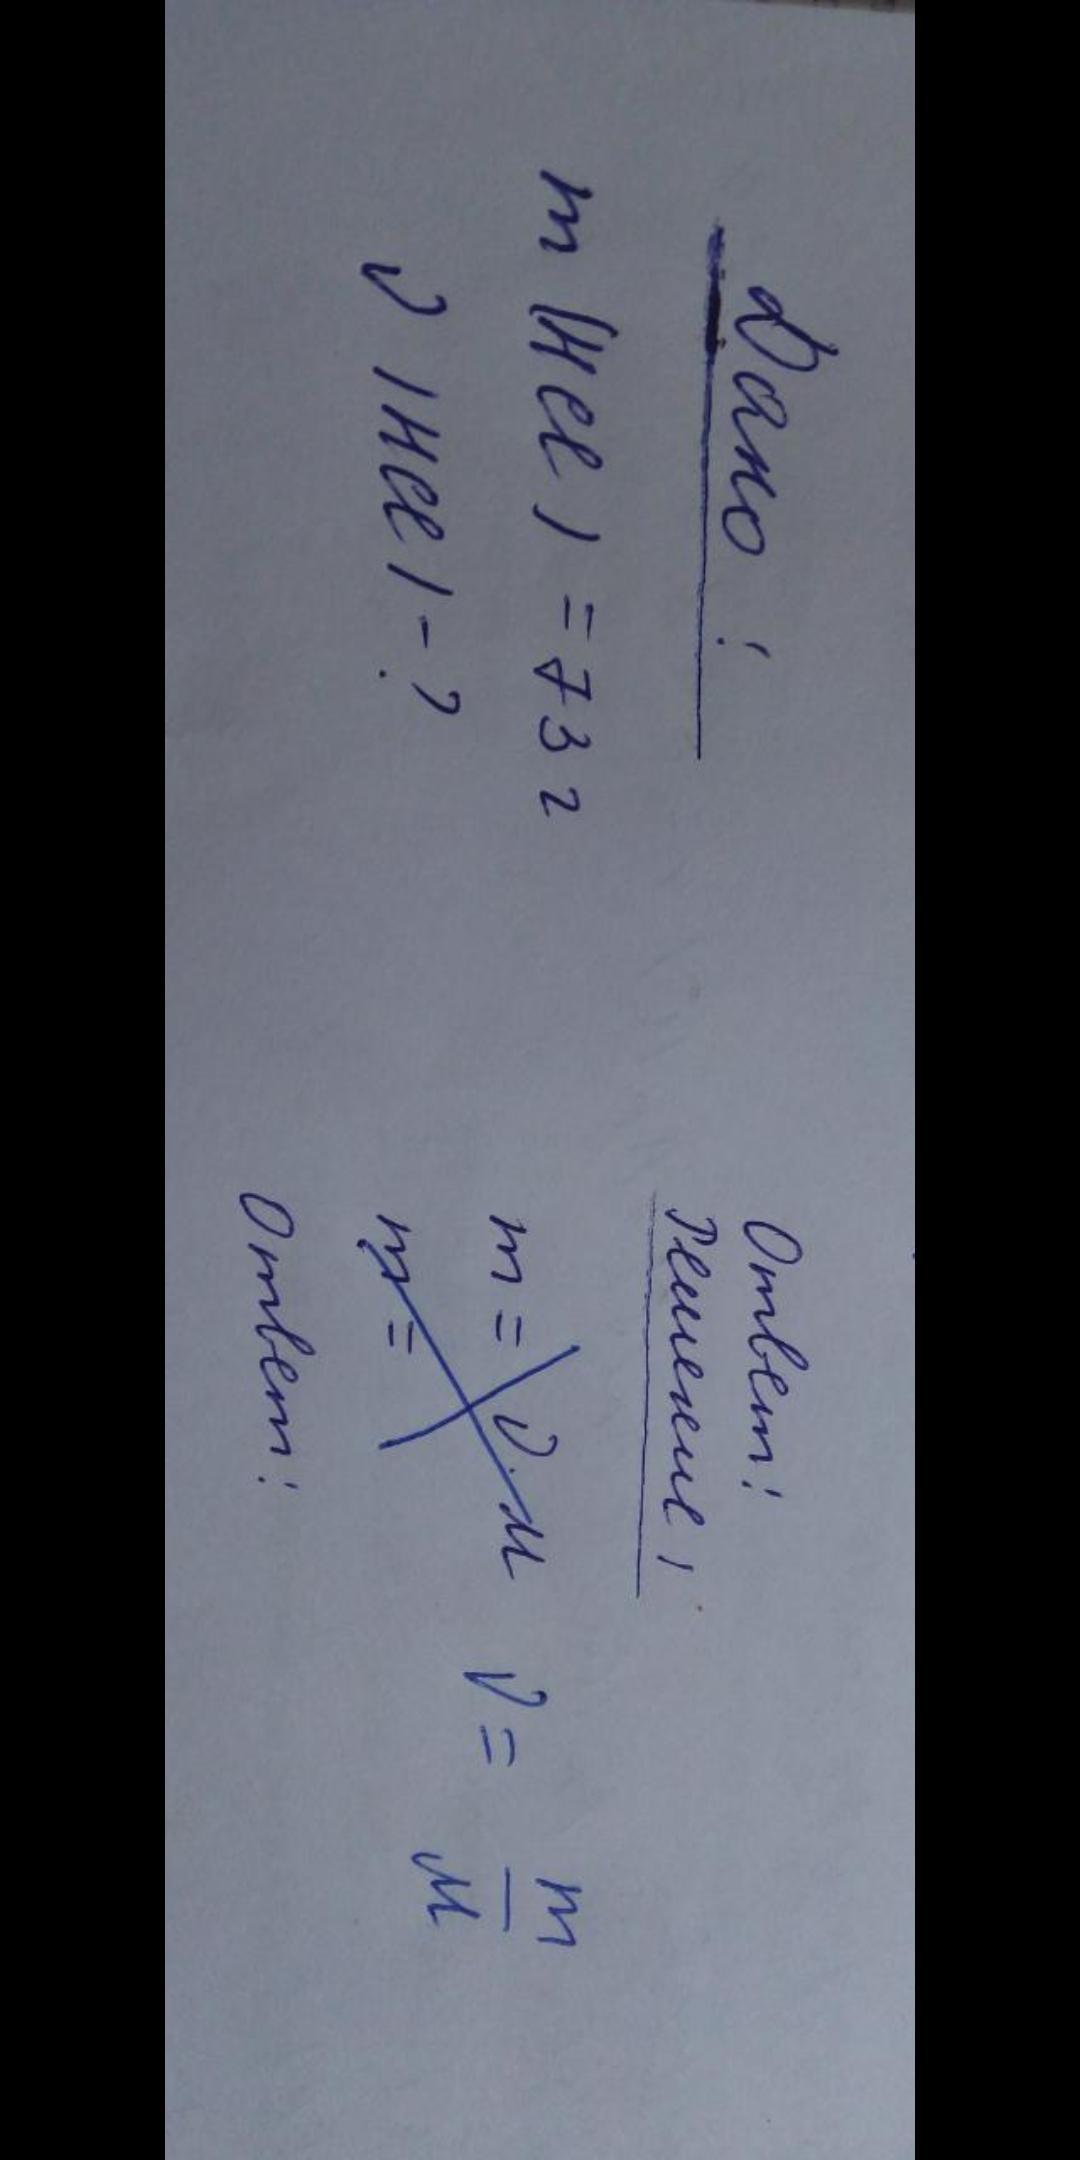 Дано:
m (HCl) = 73 г
ν (HCl) - ?
Ответ:
Решение:
m = ν · M
ν = m / M
m =
Ответ: